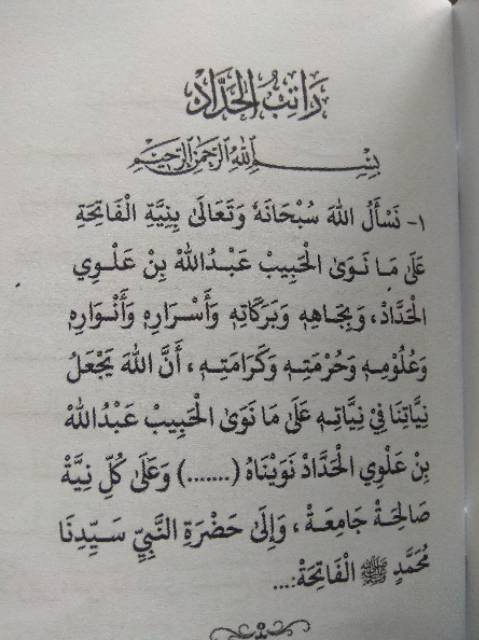 رَاتِبُ الْحَدَّادْ
بِسْمِ اللهِ الرَّحْمٰنِ الرَّحِيْمِ
١- نَسْأَلُ اللهَ سُبْحَانَهُ وَتَعَالَىٰ بِنِيَّةِ الْفَاتِحَةِ
عَلَىٰ مَا نَوَىٰ الْحَبِيبْ عَبْدُاللهْ بِنْ عَلْوِي
الْحَدَّادْ، وَبِجَاهِهِ وَبَرَكَاتِهِ وَأَسْرَارِهِ وَأَنْوَارِهِ
وَعُلُوْمِهِ وَحُرْمَتِهِ وَكَرَامَتِهِ، أَنَّ اللهَ يَجْعَلُ
نِيَّاتَنَا فِيْ نِيَّاتِهِ عَلَىٰ مَا نَوَىٰ الْحَبِيبْ عَبْدُاللهْ
بِنْ عَلْوِي الْحَدَّادْ نَوَيْنَاهُ (.......) وَعَلَىٰ كُلِّ نِيَّةْ
صَالِحَةْ جَامِعَةْ، وَإِلَىٰ حَضْرَةِ النَّبِيِّ سَيِّدِنَا
مُحَمَّدٍ ﷺ الْفَاتِحَةْ:...